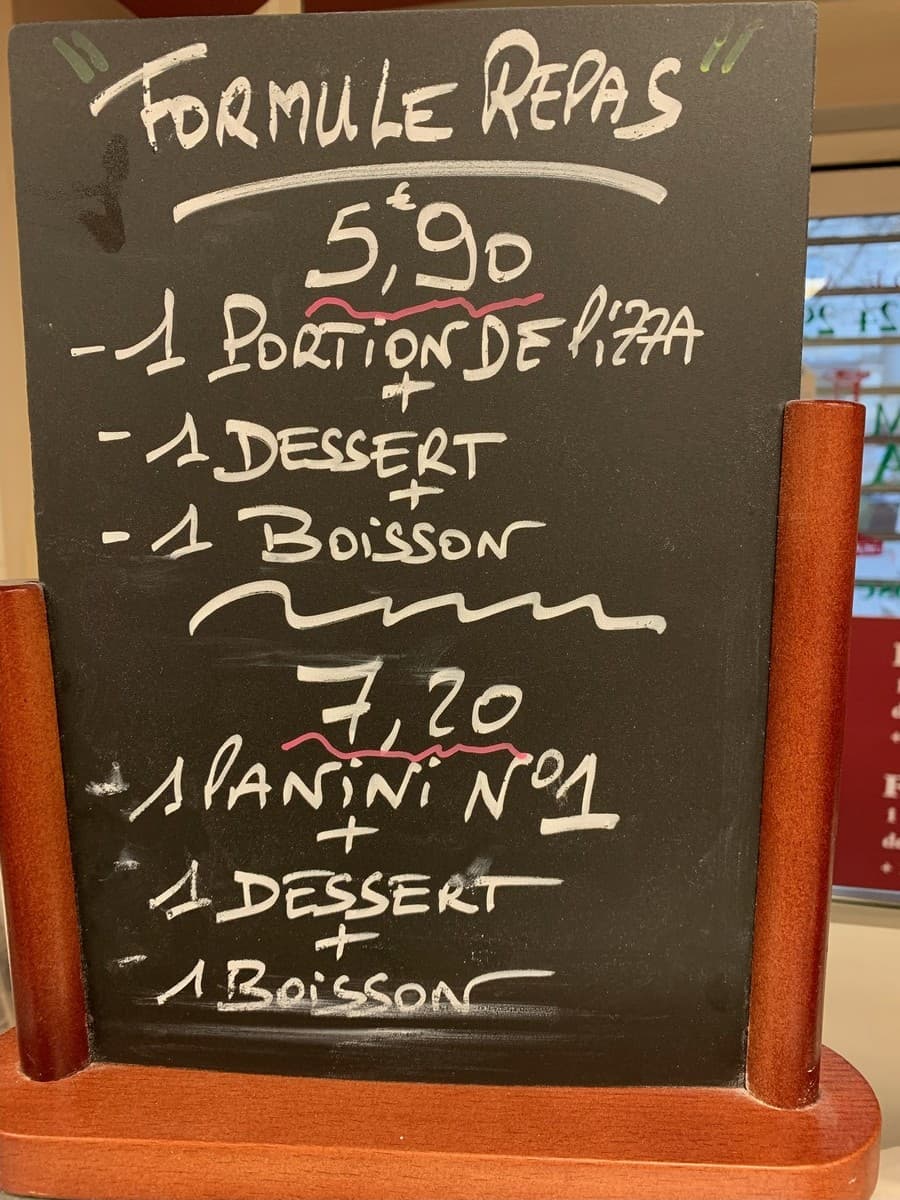 "FORMULE REPAS"
5,€90
-1 PORTION DE PIZZA
+
-1 DESSERT
+
-1 BOISSON
7,20
-1 PANINI N°1
+
-1 DESSERT
+
-1 BOISSON